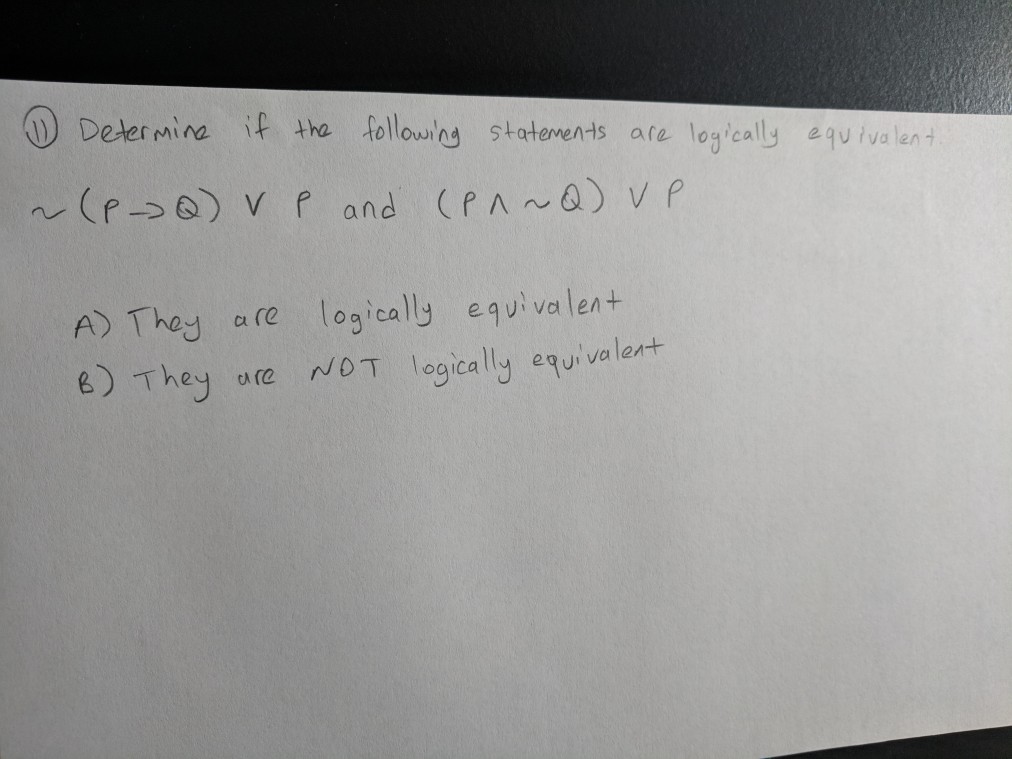 ⑪ Determine if the following statements are logically equivalent.
~(P→Q) ∨ P and (P∧~Q) ∨ P
A) They are logically equivalent
B) They are NOT logically equivalent